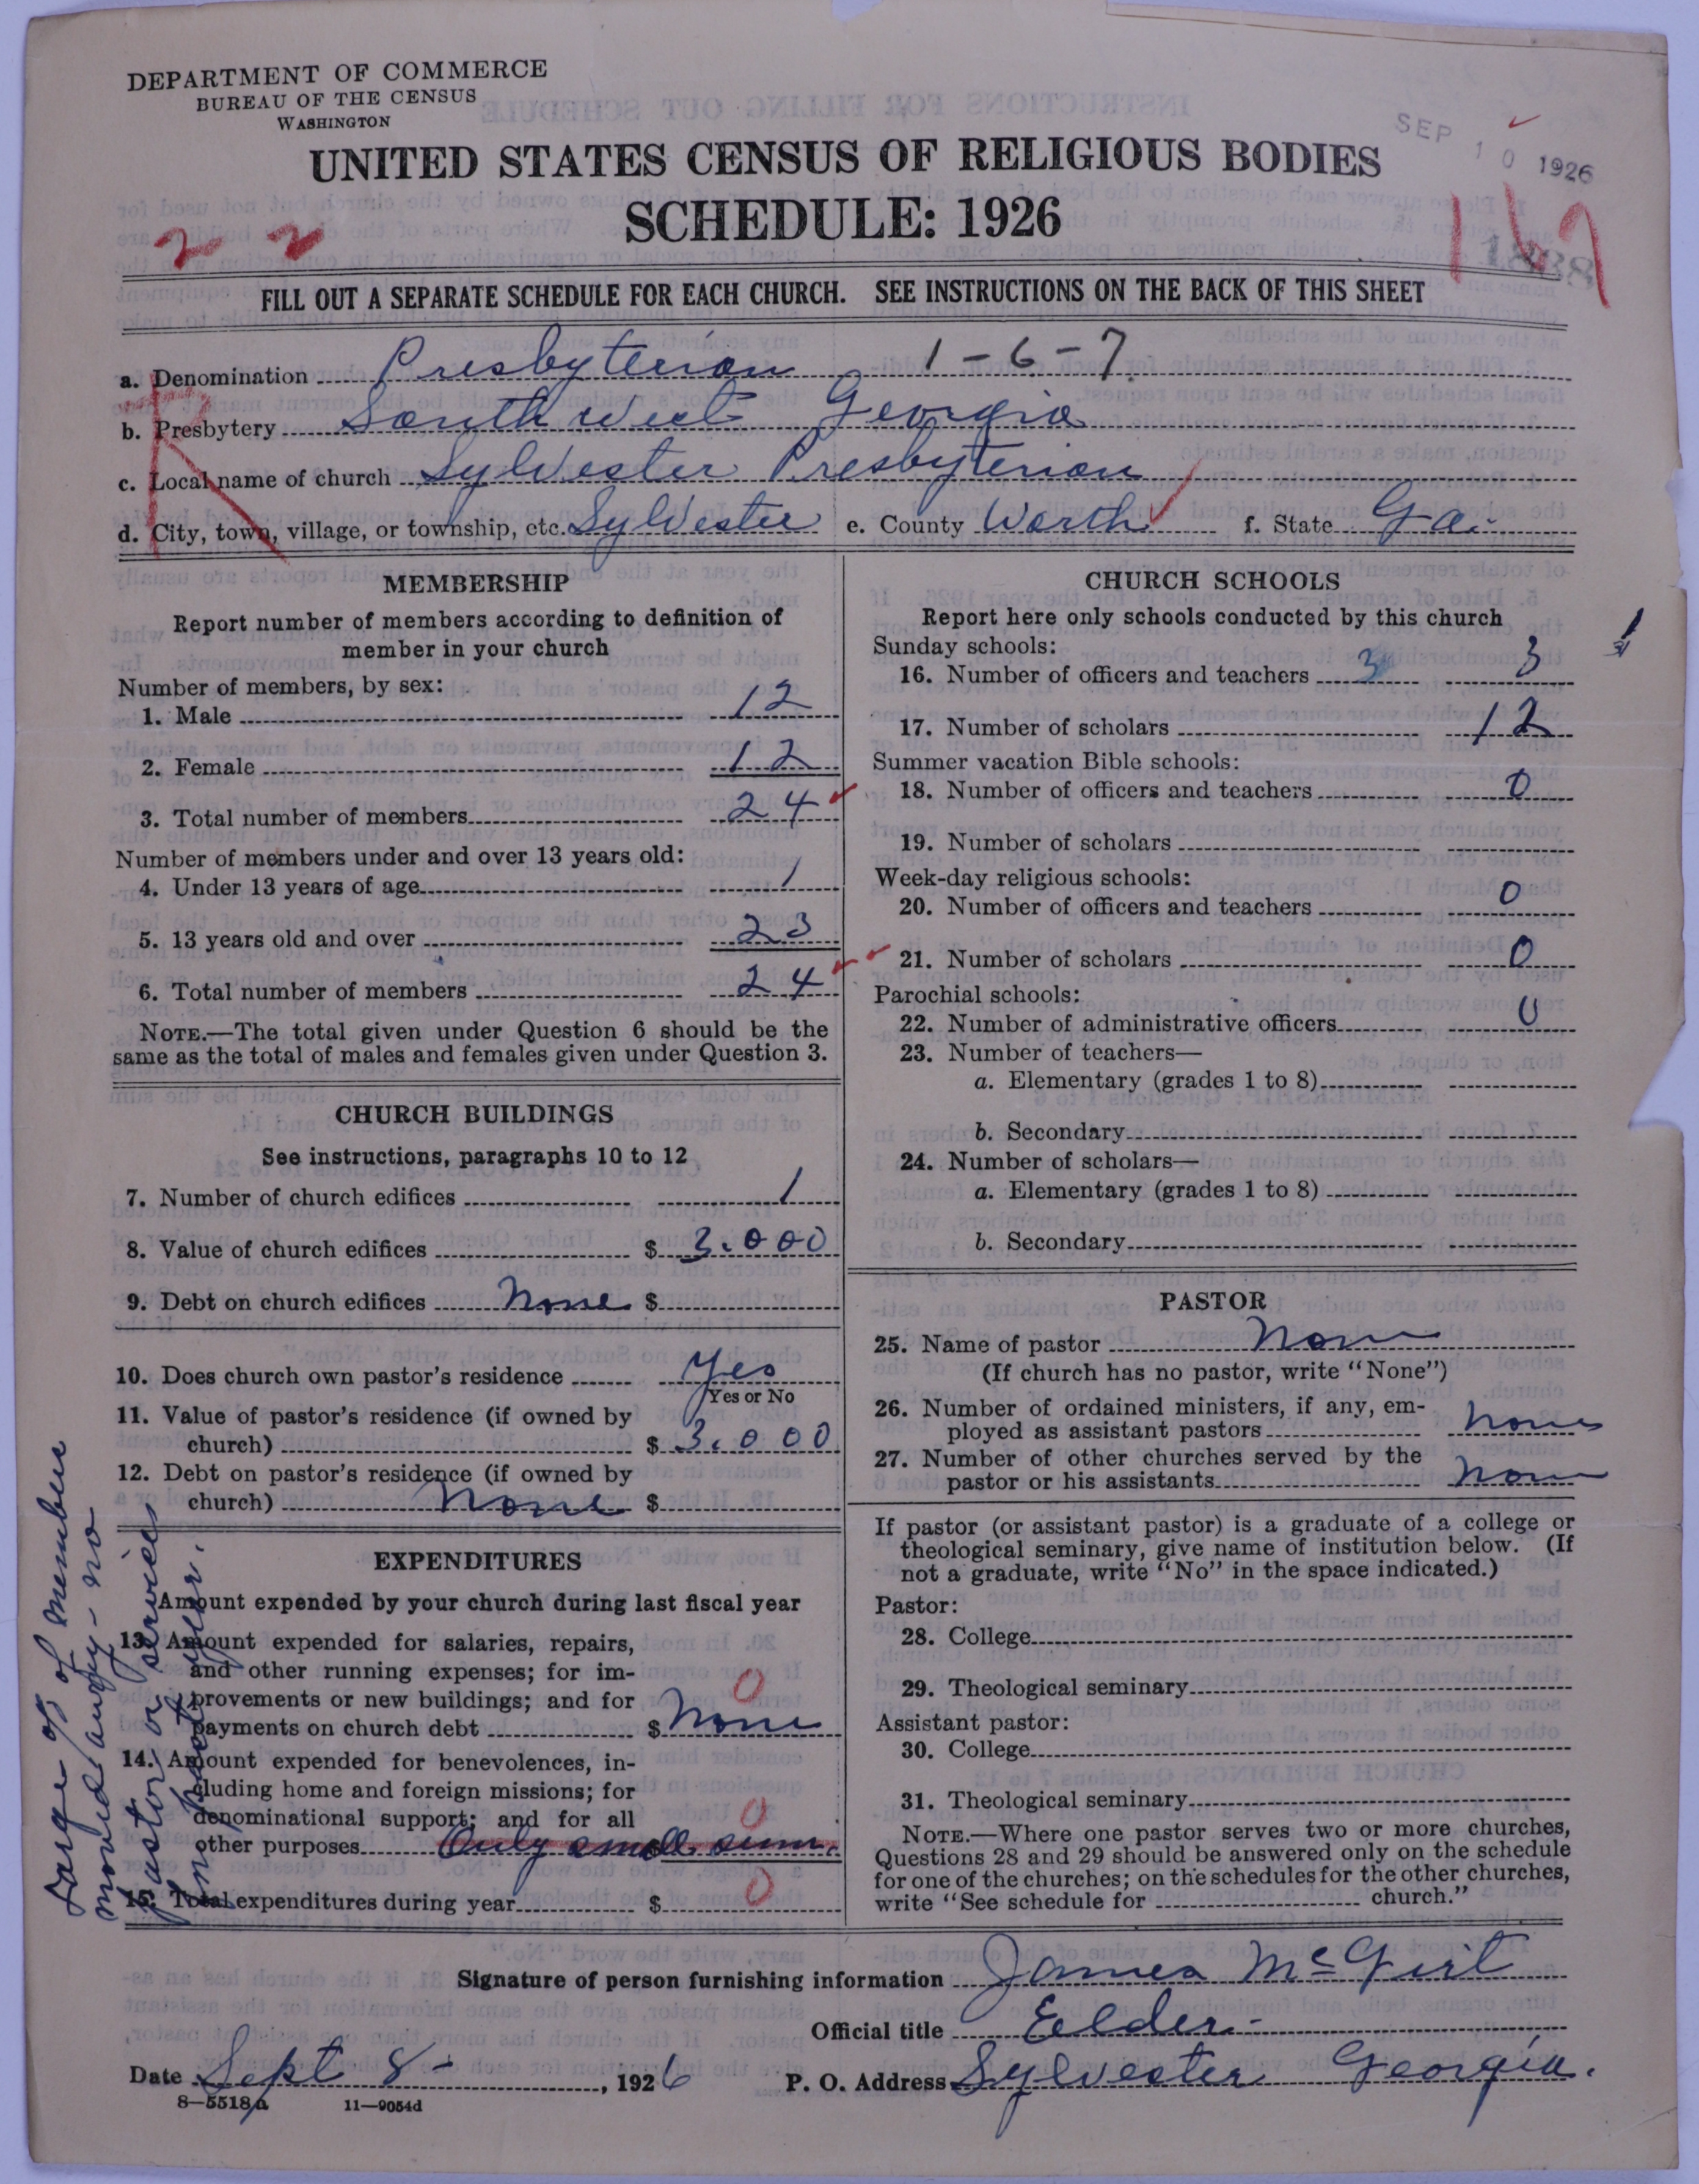 DEPARTMENT OF COMMERCE
BUREAU OF THE CENSUS
WASHINGTON
UNITED STATES CENSUS OF RELIGIOUS BODIES
SCHEDULE: 1926
SEP 10 1926
2 2
FILL OUT A SEPARATE SCHEDULE FOR EACH CHURCH. SEE INSTRUCTIONS ON THE BACK OF THIS SHEET
a. Denomination Presbyterian 1-6-7
b. Presbytery South West Georgia
c. Local name of church Sylvester Presbyterian
d. City, town, village, or township, etc. Sylvester e. County Worth f. State Ga.
R
MEMBERSHIP
Report number of members according to definition of
member in your church
Number of members, by sex:
1. Male 12
2. Female 12
3. Total number of members 24
Number of members under and over 13 years old:
4. Under 13 years of age 1
5. 13 years old and over 23
6. Total number of members 24
NOTE.—The total given under Question 6 should be the
same as the total of males and females given under Question 3.
CHURCH BUILDINGS
See instructions, paragraphs 10 to 12
7. Number of church edifices 1
8. Value of church edifices $ 3.000
9. Debt on church edifices None $
10. Does church own pastor's residence Yes
Yes or No
11. Value of pastor's residence (if owned by
church) $ 3.000
12. Debt on pastor's residence (if owned by
church) None $
EXPENDITURES
Amount expended by your church during last fiscal year
13. Amount expended for salaries, repairs,
and other running expenses; for im-
provements or new buildings; and for 0
payments on church debt $ None
14. Amount expended for benevolences, in-
cluding home and foreign missions; for
denominational support; and for all 0
other purposes Only small sum.
15. Total expenditures during year $ 0
Large % of members
moved away - no
pastor or services
in past year.
CHURCH SCHOOLS
Report here only schools conducted by this church
Sunday schools:
16. Number of officers and teachers 3 3
17. Number of scholars 12
Summer vacation Bible schools:
18. Number of officers and teachers 0
19. Number of scholars
Week-day religious schools:
20. Number of officers and teachers 0
21. Number of scholars 0
Parochial schools:
22. Number of administrative officers 0
23. Number of teachers—
a. Elementary (grades 1 to 8)
b. Secondary
24. Number of scholars—
a. Elementary (grades 1 to 8)
b. Secondary
PASTOR
25. Name of pastor None
(If church has no pastor, write "None")
26. Number of ordained ministers, if any, em-
ployed as assistant pastors None
27. Number of other churches served by the
pastor or his assistants None
If pastor (or assistant pastor) is a graduate of a college or
theological seminary, give name of institution below. (If
not a graduate, write "No" in the space indicated.)
Pastor:
28. College
29. Theological seminary
Assistant pastor:
30. College
31. Theological seminary
NOTE.—Where one pastor serves two or more churches,
Questions 28 and 29 should be answered only on the schedule
for one of the churches; on the schedules for the other churches,
write "See schedule for church."
Signature of person furnishing information James McGirt
Official title Elder
Date Sept 8 - , 1926 P. O. Address Sylvester Georgia.
8—5518a 11—9054d